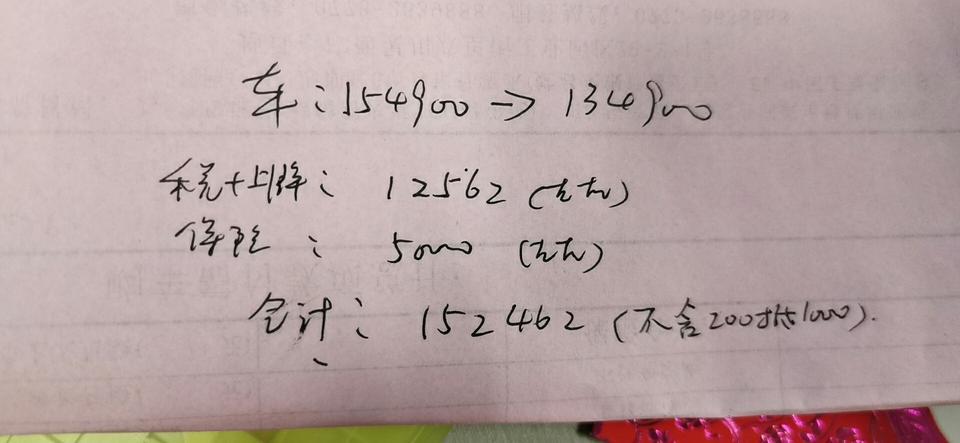 车：154900→134900
税+上牌：12562（左右）
保险：5000（左右）
合计：152462（不含200抵1000）.